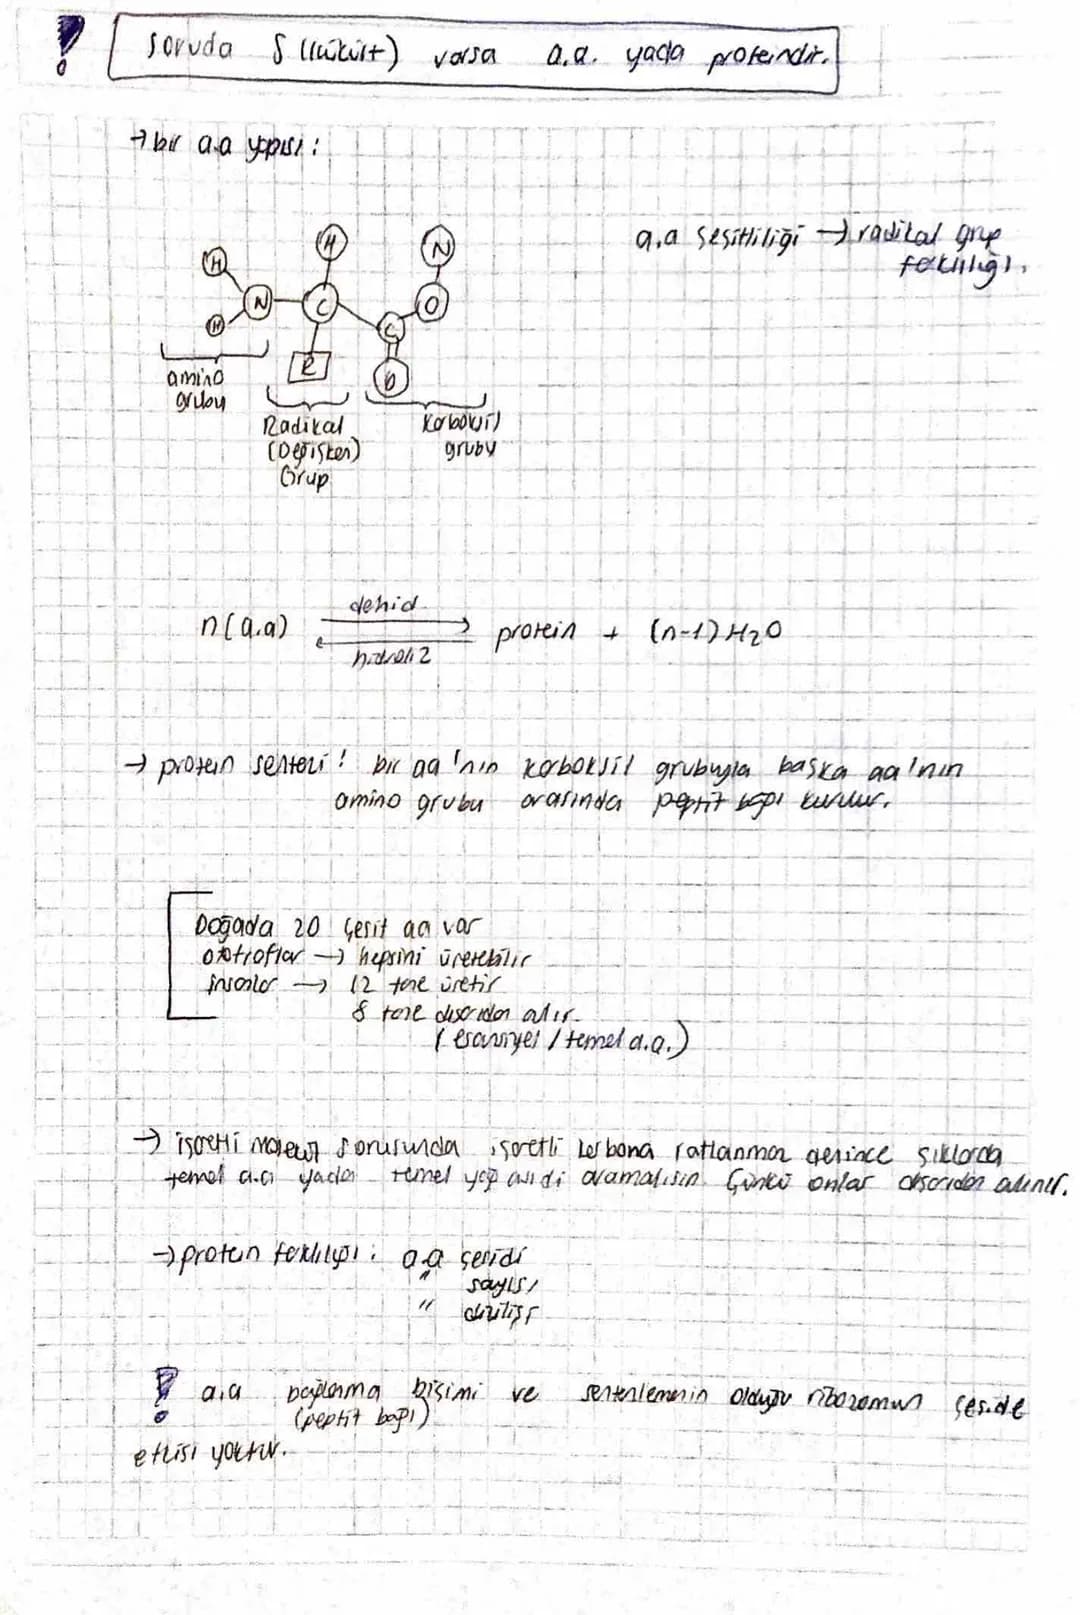 ! soruda S (kükürt) varsa a.a. yada proteindir.
→ bir a.a yapısı:
a.a çeşitliliği → radikal grup
farklılığı.
H H N
H N C C O
R O
amino
grubu
Radikal
(Değişken)
Grup
Karboksil
grubu
n(a.a) dehid. protein + (n-1) H₂O
hidroliz
→ protein sentezi: bir aa'nın karboksil grubuyla başka aa'nın
amino grubu arasında peptit bağı kurulur.
Doğada 20 çeşit aa var
ototroflar → hepsini üretebilir
insanlar → 12 tane üretir
8 tane dışarıdan alır.
(esansiyel / temel a.a.)
→ işaretli sorusunda işaretli karbona rastlanmaz denince şıklarda
temel a.a yada temel yağ asidi aramalısın. Çünkü onlar dışarıdan alınır.
→ protein farklılığı: a.a çeşidi
" sayısı
" dizilişi
! a.a bağlanma biçimi ve sentezlemenin olduğu ribozomun çeside
(peptit bağı)
etkisi yoktur.